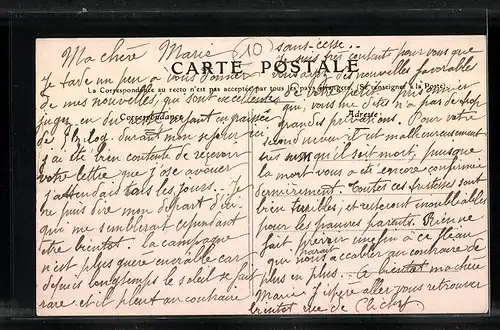 Ma chère Marie (10)
CARTE POSTALE
La Correspondance au recto n'est pas acceptée par tous les pays étrangers. (Se renseigner à la Poste)
Correspondance
Adresse
Je tarde un peu à vous donner
de mes nouvelles, qui sont excellentes
jugez en
de durant mon séjour ici
j'ai été bien contente de recevoir
votre lettre que j'ose avouer
j'attendais tous les jours.. Je
ne puis dire mon départ d'ici
qui me semblerait cependant
être bientôt. La campagne
n'est plus guère enviable car
depuis longtemps le soleil se fait
rare et il pleut au contraire
sans cesse..
Je suis très contente pour vous que
vous ayez des nouvelles favorables
de votre
qui, vous me dites n'a pas de trop
grandes privations. Pour votre
second neveu il est malheureusement
sûr qu'il soit mort, puisque
la mort vous a été encore confirmée
dernièrement. Toutes ces tristesses sont
bien terribles; et resteront inoubliables
pour les pauvres parents. Rien ne
fait prévoir une fin à ce fléau
qui paraît nous accabler au contraire de
plus en plus.. A bientôt ma chère
Marie j'espère aller vous retrouver
bientôt rue de Clichy